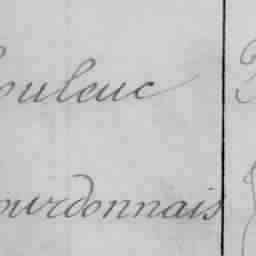 ouleuc
ourdonnais